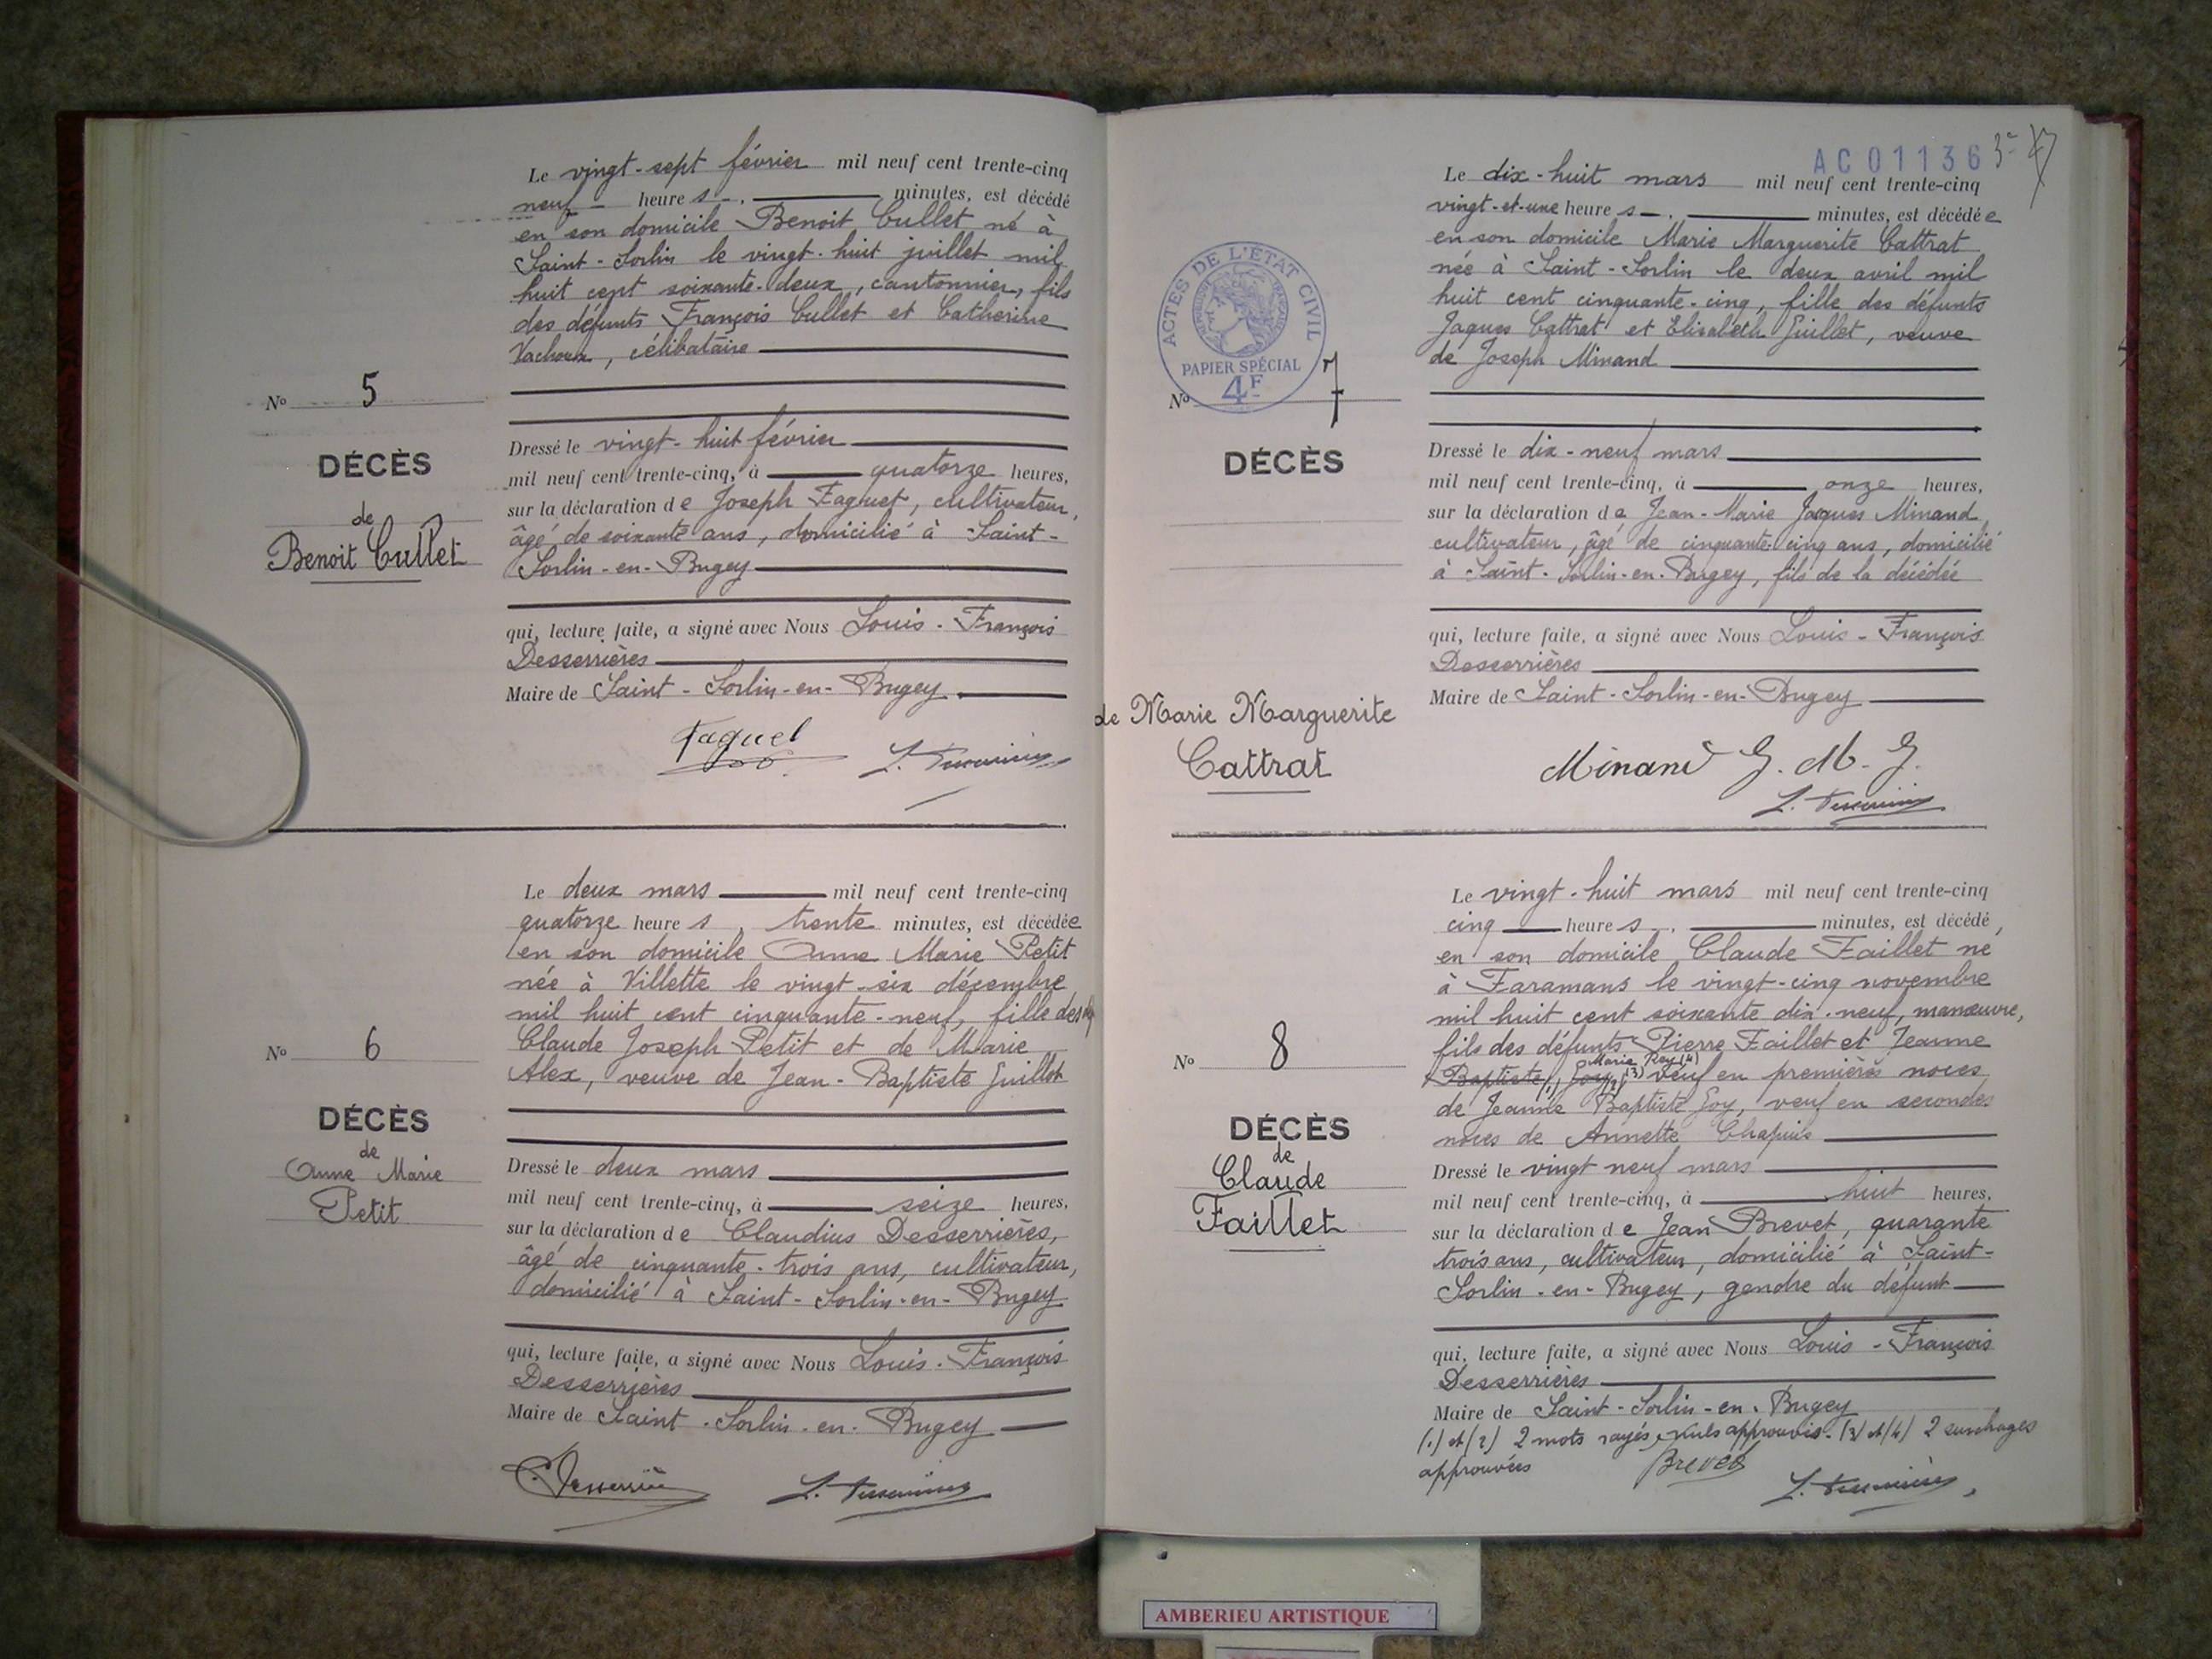 Le vingt-sept février mil neuf cent trente-cinq
neuf heures minutes, est décédé
en son domicile Benoit Cullet né à
Saint-Sorlin le vingt-huit juillet mil
huit cent soixante-deux, cantonnier, fils
des défunts François Cullet et Catherine
Vachoux, célibataire
No 5
DÉCÈS
de
Benoit Cullet
Dressé le vingt-huit février
mil neuf cent trente-cinq, à quatorze heures,
sur la déclaration de Joseph Faguet, cultivateur,
âgé de soixante ans, domicilié à Saint-
Sorlin-en-Bugey
qui, lecture faite, a signé avec Nous Louis-François
Desserrières
Maire de Saint-Sorlin-en-Bugey
Faguet
Le deux mars mil neuf cent trente-cinq
quatorze heures, trente minutes, est décédée
en son domicile Anne Marie Petit
née à Villette le vingt-six décembre
mil huit cent cinquante-neuf, fille des
Claude Joseph Petit et de Marie
Alex, veuve de Jean-Baptiste Guillot
No 6
DÉCÈS
de
Anne Marie
Petit
Dressé le deux mars
mil neuf cent trente-cinq, à seize heures,
sur la déclaration de Claudius Desserrières,
âgé de cinquante-trois ans, cultivateur,
domicilié à Saint-Sorlin-en-Bugey
qui, lecture faite, a signé avec Nous Louis-François
Desserrières
Maire de Saint-Sorlin-en-Bugey
AC01136
Le dix-huit mars mil neuf cent trente-cinq
vingt-et-une heures minutes, est décédée
en son domicile Marie Marguerite Cattrat
née à Saint-Sorlin le deux avril mil
huit cent cinquante-cinq, fille des défunts
Jaques Cattrat et Elisabeth Guillet, veuve
de Joseph Minand
ACTES DE L'ÉTAT CIVIL
PAPIER SPÉCIAL
4F
No 7
DÉCÈS
de Marie Marguerite
Cattrat
Dressé le dix-neuf mars
mil neuf cent trente-cinq, à onze heures,
sur la déclaration de Jean-Marie Jacques Minand
cultivateur, âgé de cinquante-cinq ans, domicilié
à Saint-Sorlin-en-Bugey, fils de la décédée
qui, lecture faite, a signé avec Nous Louis-François
Desserrières
Maire de Saint-Sorlin-en-Bugey
Minand J. M. J.
Le vingt-huit mars mil neuf cent trente-cinq
cinq heures minutes, est décédé,
en son domicile Claude Faillet né
à Faramans le vingt-cinq novembre
mil huit cent soixante dix-neuf, manœuvre,
fils des défunts Pierre Faillet et Jeanne
Marie Rey (4)
Baptiste, Goy, (3) veuf en premières noces
de Jeanne Baptiste Goy, veuf en secondes
noces de Annette Chapuis
No 8
DÉCÈS
de
Claude
Faillet
Dressé le vingt neuf mars
mil neuf cent trente-cinq, à huit heures,
sur la déclaration de Jean Brevet, quarante
trois ans, cultivateur, domicilié à Saint-
Sorlin-en-Bugey, gendre du défunt
qui, lecture faite, a signé avec Nous Louis-François
Desserrières
Maire de Saint-Sorlin-en-Bugey
(1) et (2) 2 mots rayés nuls approuvés. (3) et (4) 2 surcharges
approuvées
Brevet
AMBERIEU ARTISTIQUE